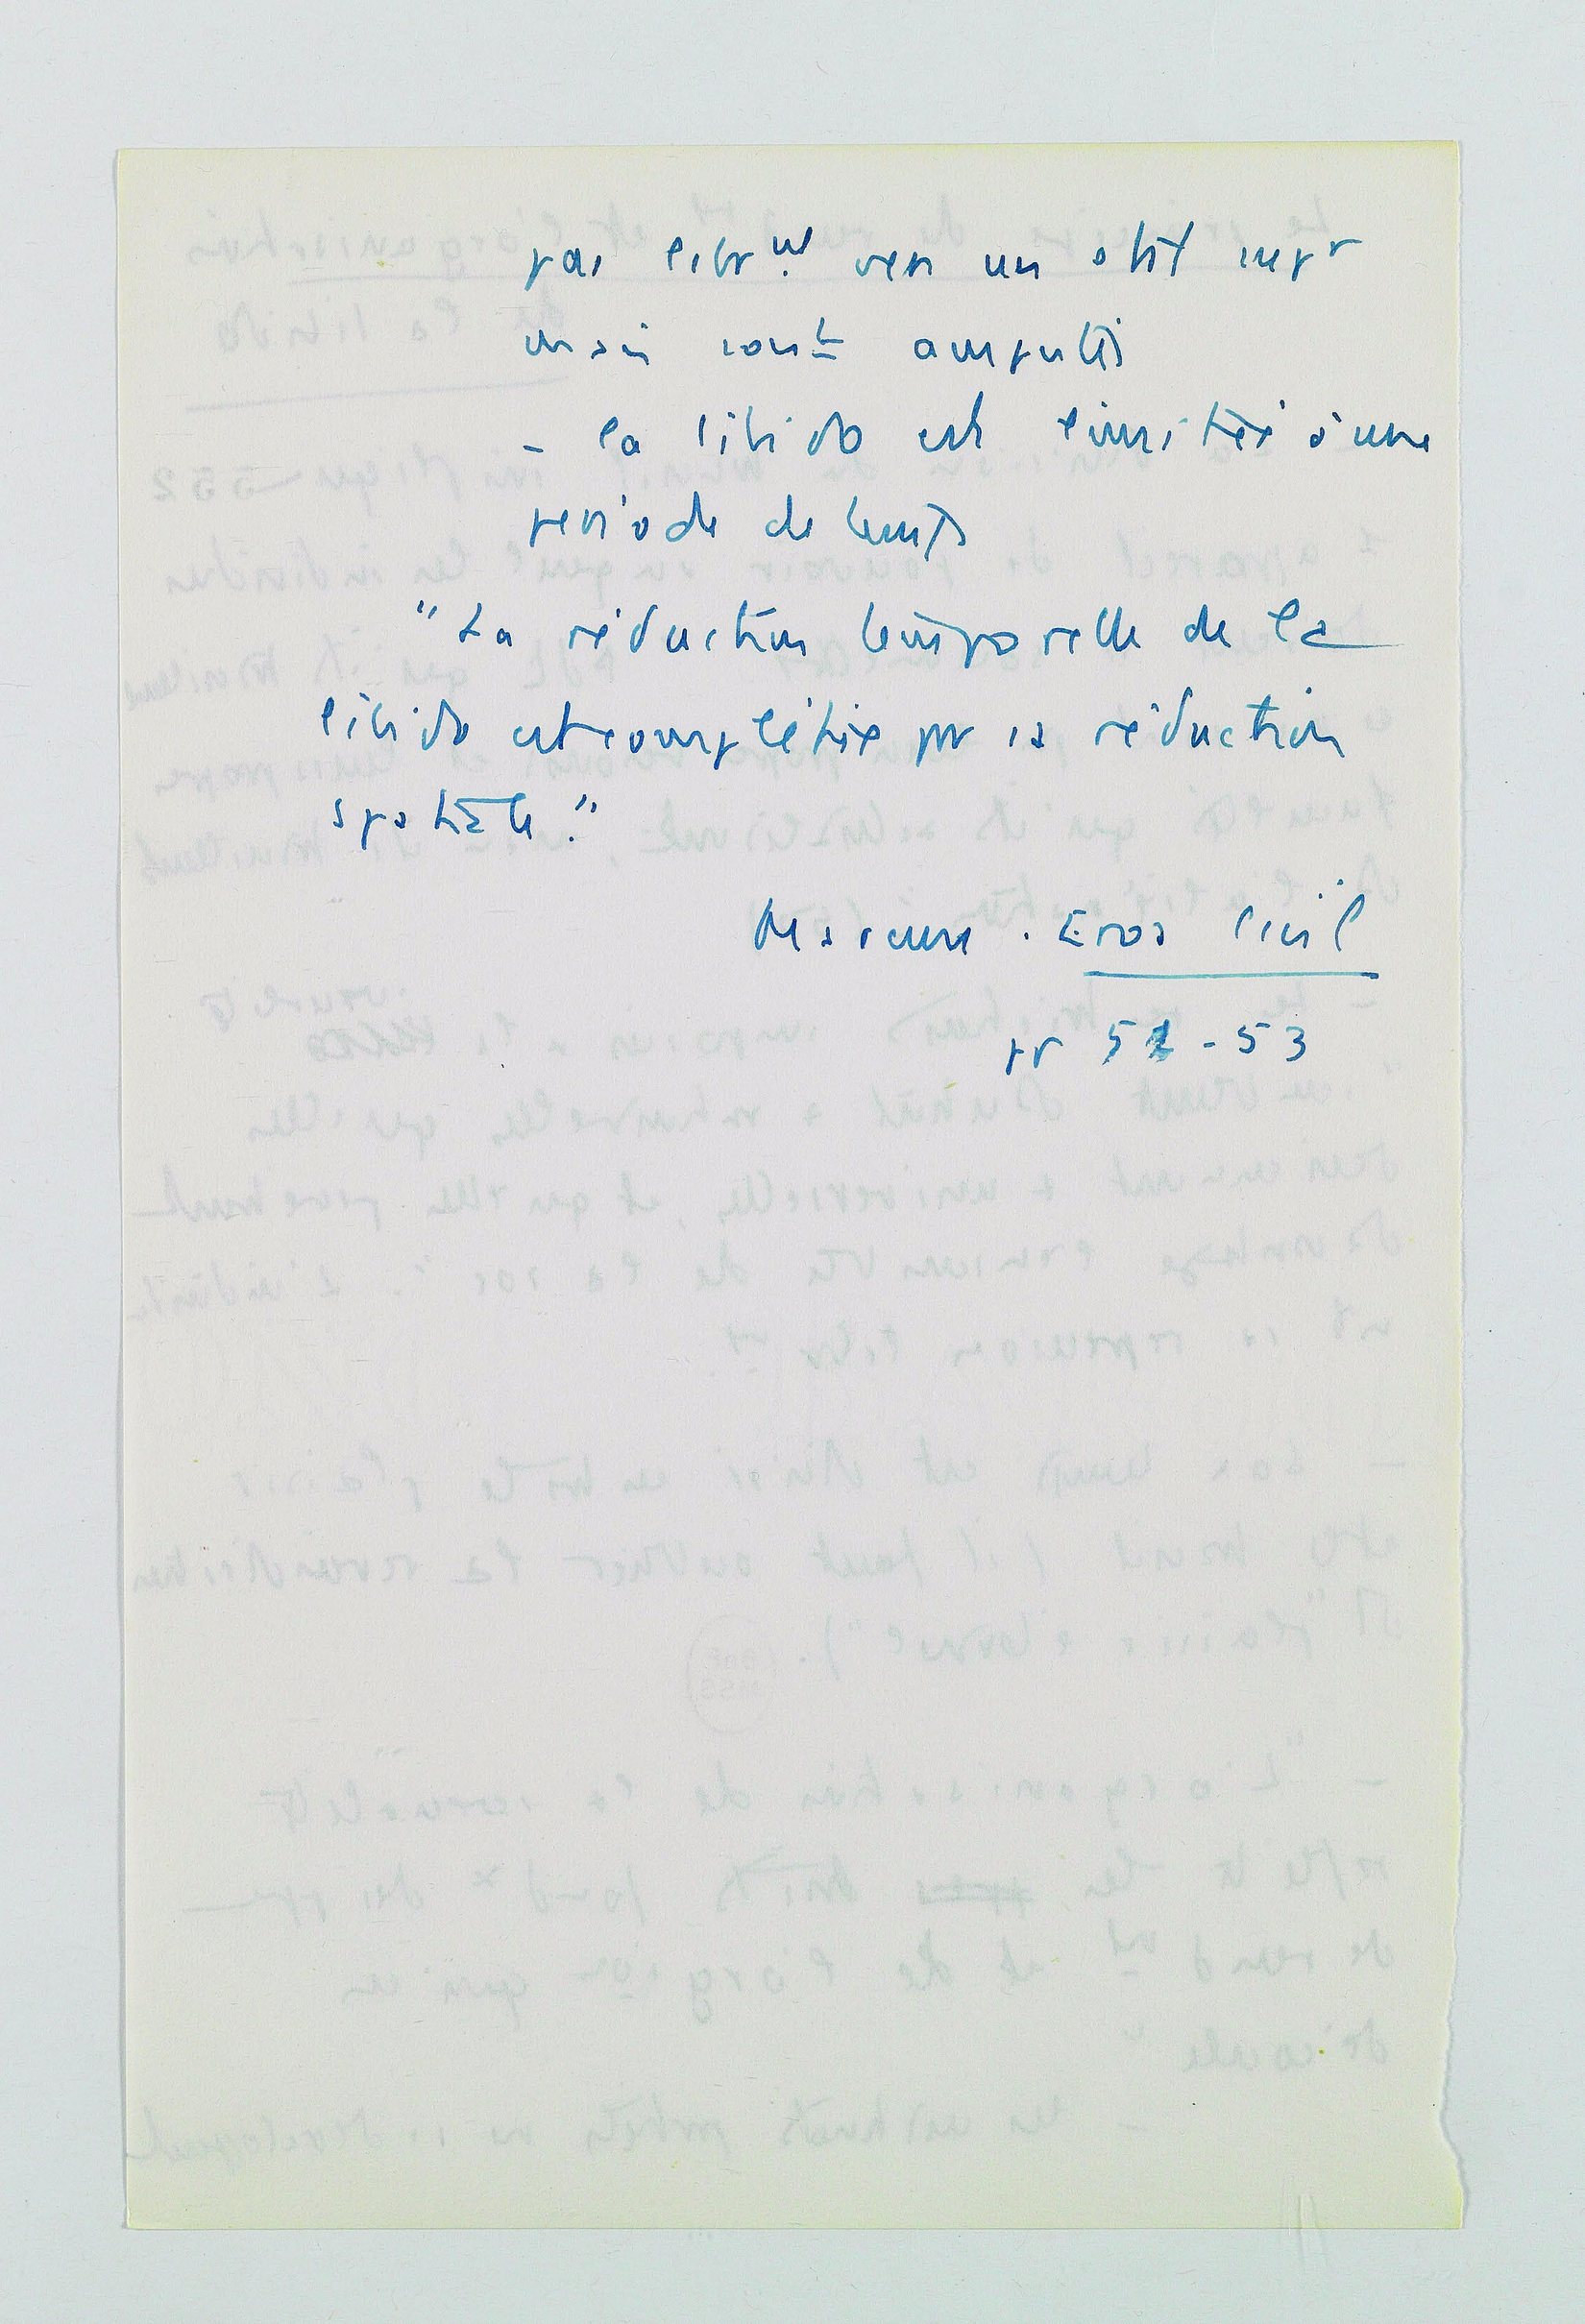 pas librmt vers un stade supr
mais sont amputés
- la libido est limitée à une
période de temps
"La réduction temporelle de la
libido est complétée par sa réduction
spatiale."
Marcuse. Eros civil
pp 52-53